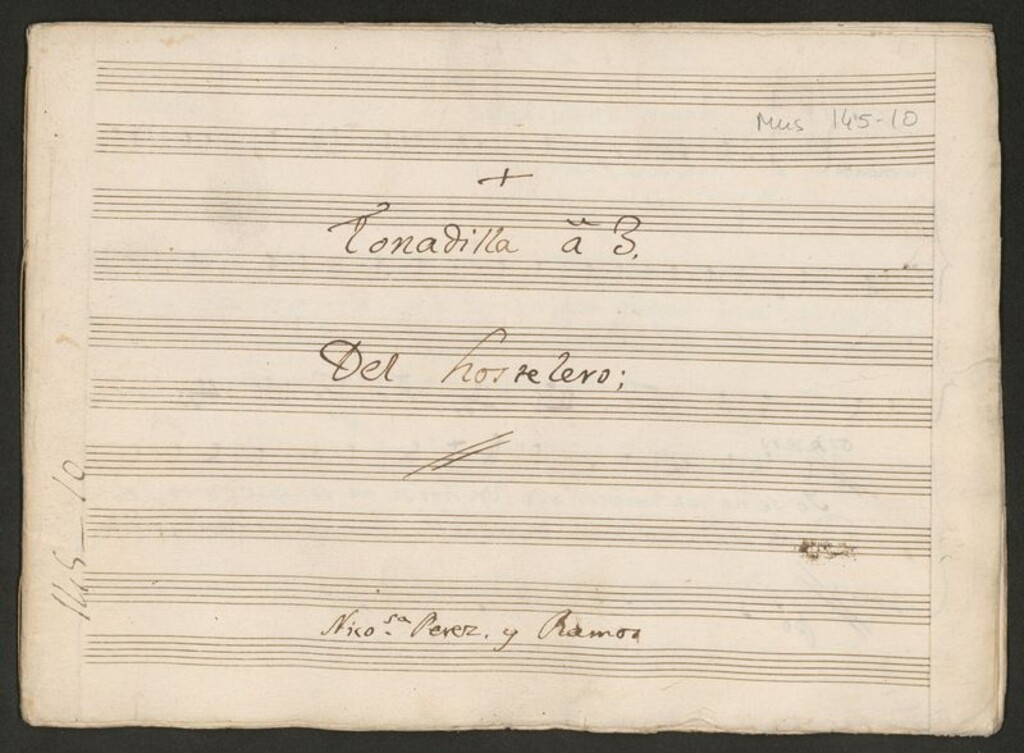 Mus 145-10
+
Tonadilla â 3.
Del hostelero;
145-10
Nico.sa Perez. y Ramos